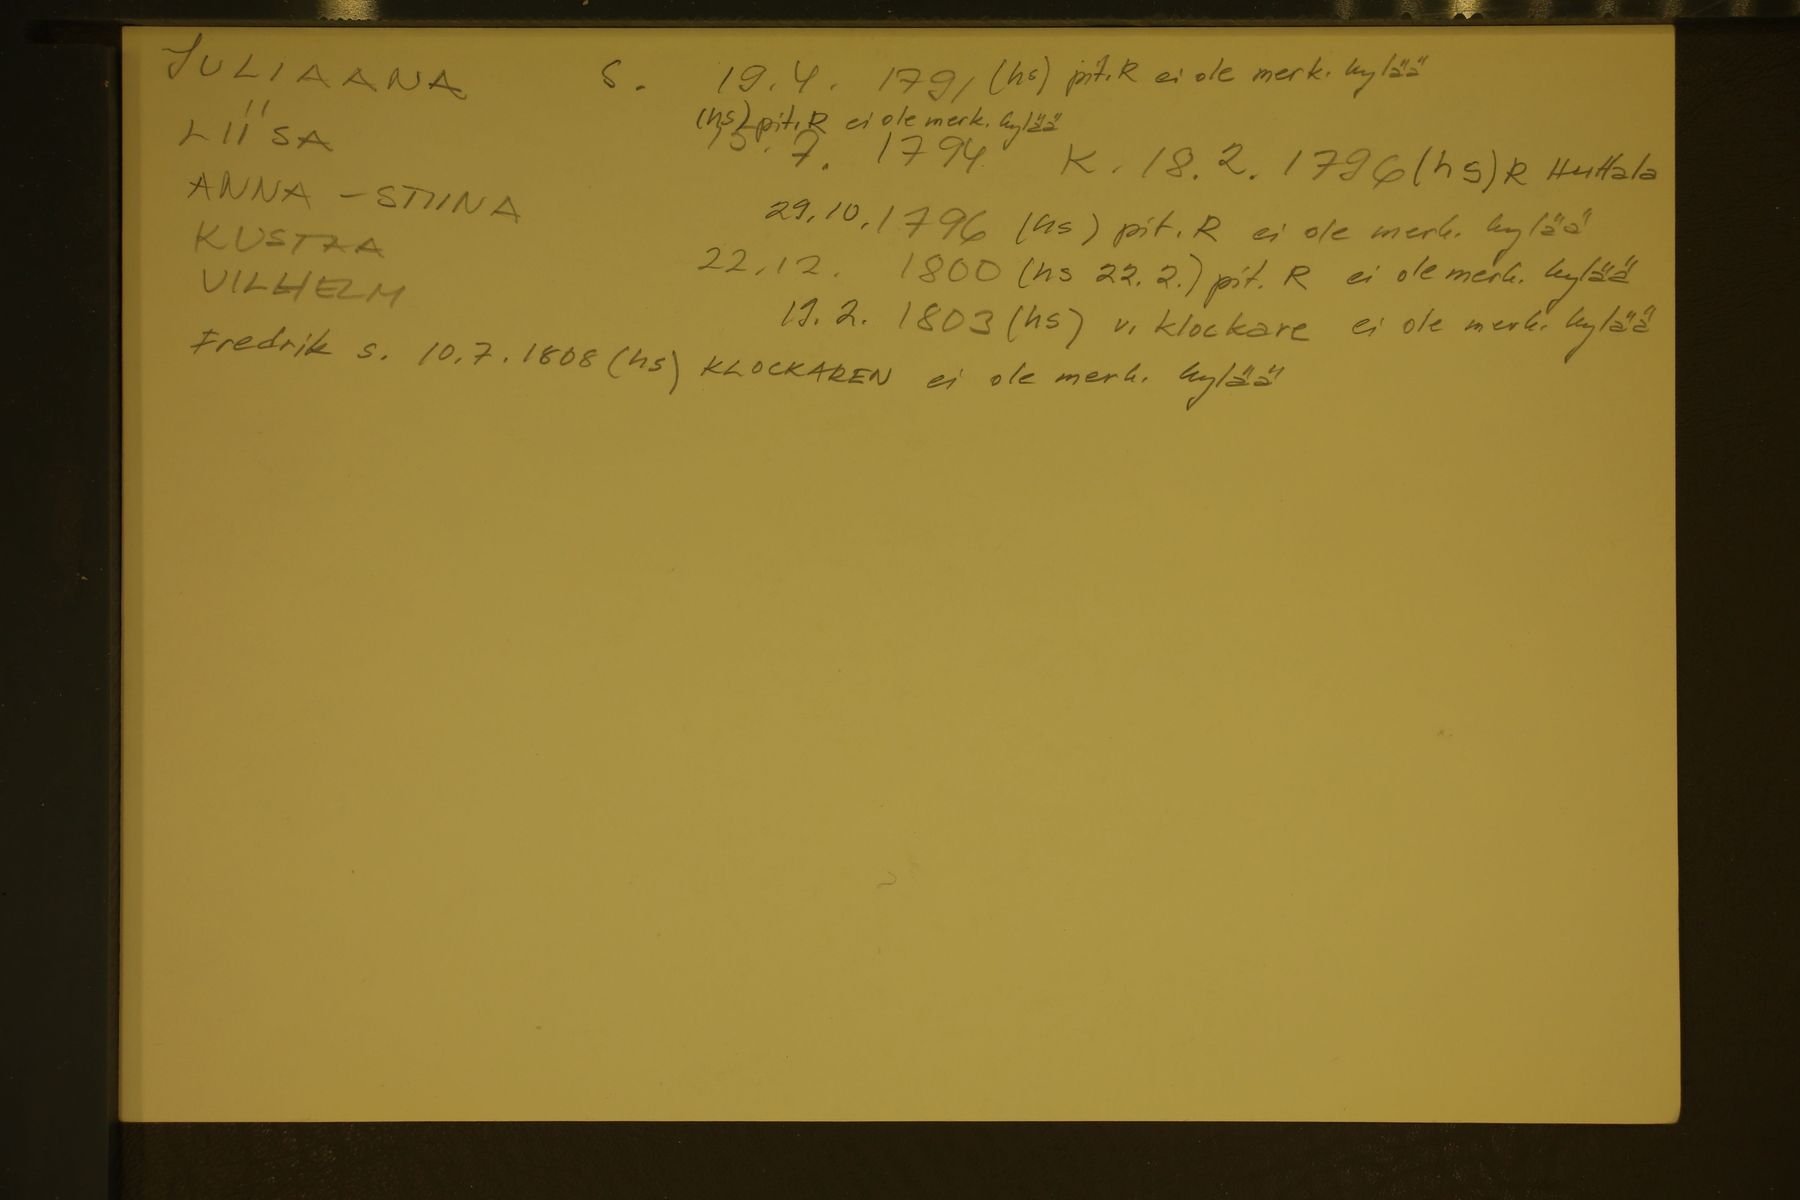 JULIAANA S. 19.4. 1791 (hs) pit. R ei ole merk. kylää
(hs) pit. R ei ole merk. kylää
LIISA 15.7. 1794 K. 18.2. 1796 (hs) R Huttala
ANNA - STIINA 29.10.1796 (hs) pit. R ei ole merk. kylää
KUSTAA 22.12. 1800 (hs 22.2.) pit. R ei ole merk. kylää
VILHELM 19.2. 1803 (hs) v. klockare ei ole merk. kylää
Fredrik s. 10.7.1808 (hs) KLOCKAREN ei ole merk. kylää